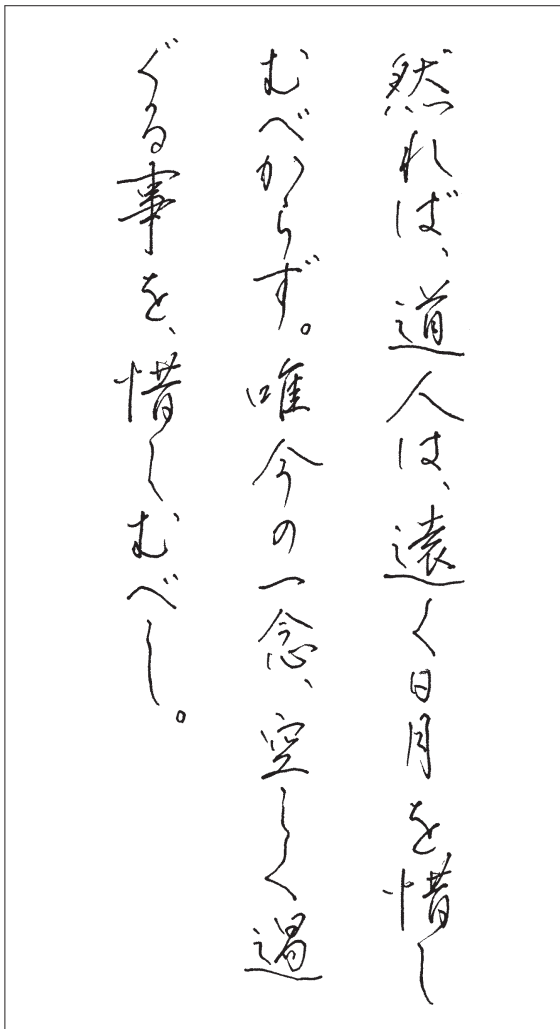 然れば、道人は、遠く日月を惜し
むべからず。唯今の一念、空しく過
ぐる事を、惜しむべし。